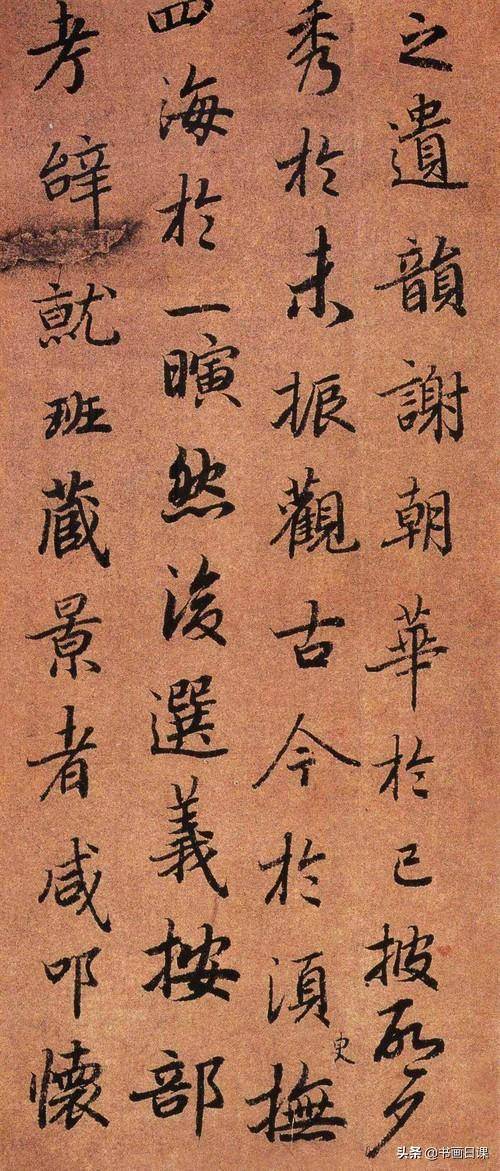 之遺韻謝朝華於已披啓夕
秀於未振觀古今於須臾撫
四海於一瞚然後選義按部
考辝就班蔵景者咸叩懷
头条 @书画日课